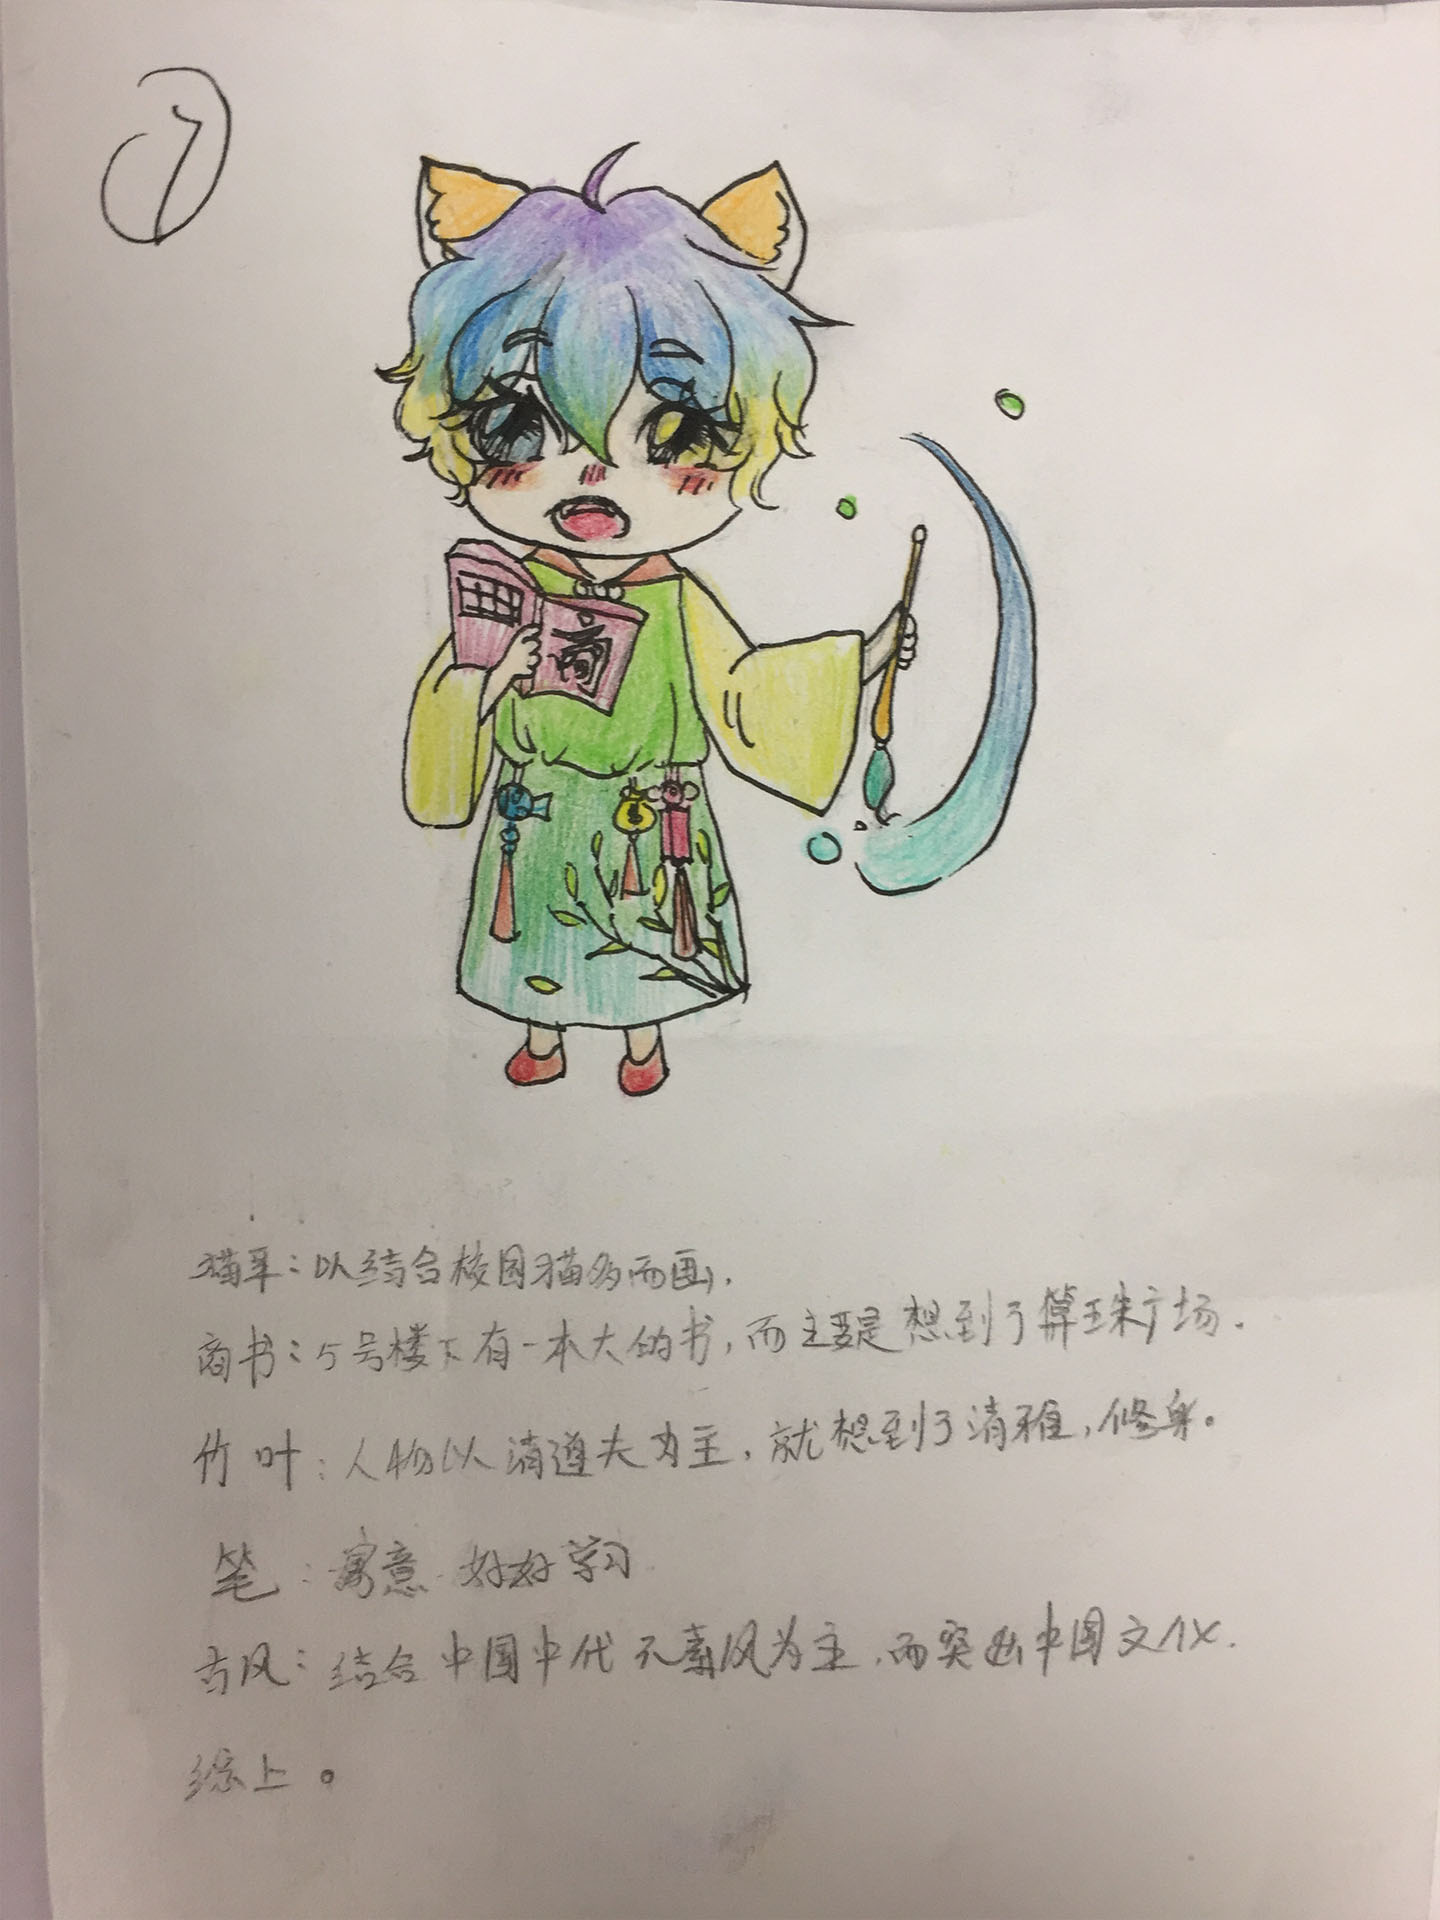 7
商
猫耳:以结合校园猫多而画,
商书:5号楼下有一本大的书,而主要是想到了算珠广场.
竹叶:人物以清道夫为主,就想到了清雅,修身。
笔:寓意 好好学习
古风:结合中国中代元素风为主,而突出中国文化.
综上。